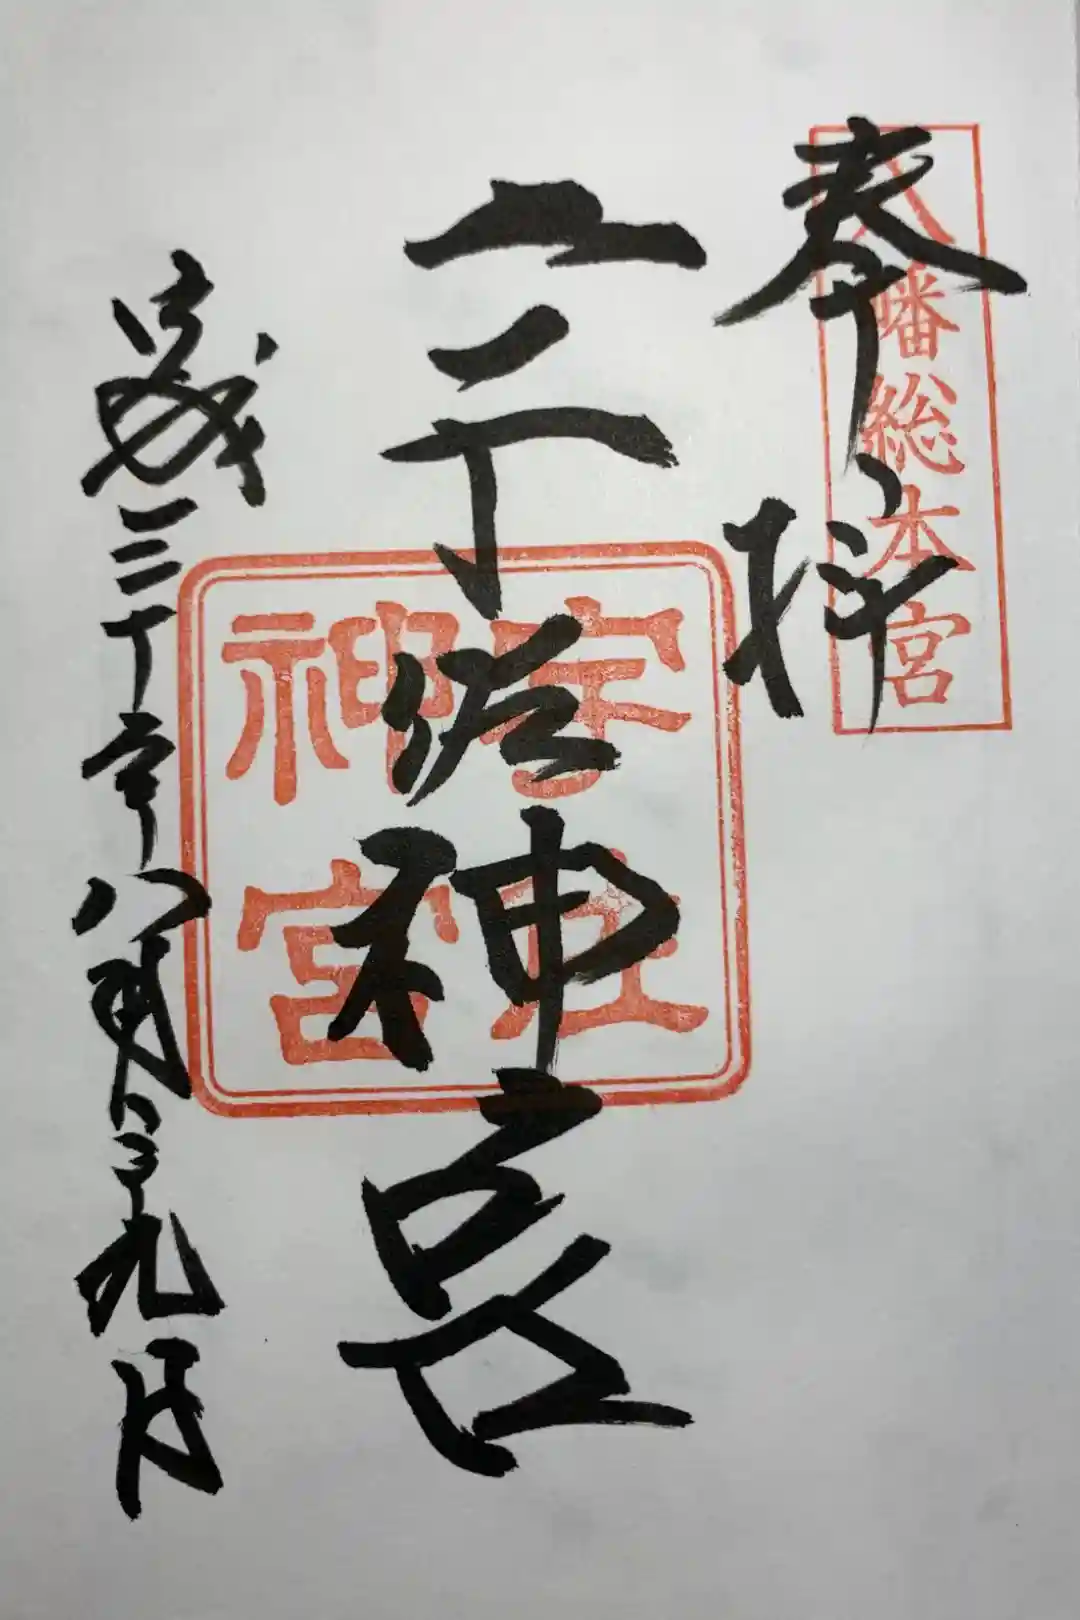 八幡総本宮
奉拝
宇佐神宮
宇佐神宮
平成三十年八月二十九日